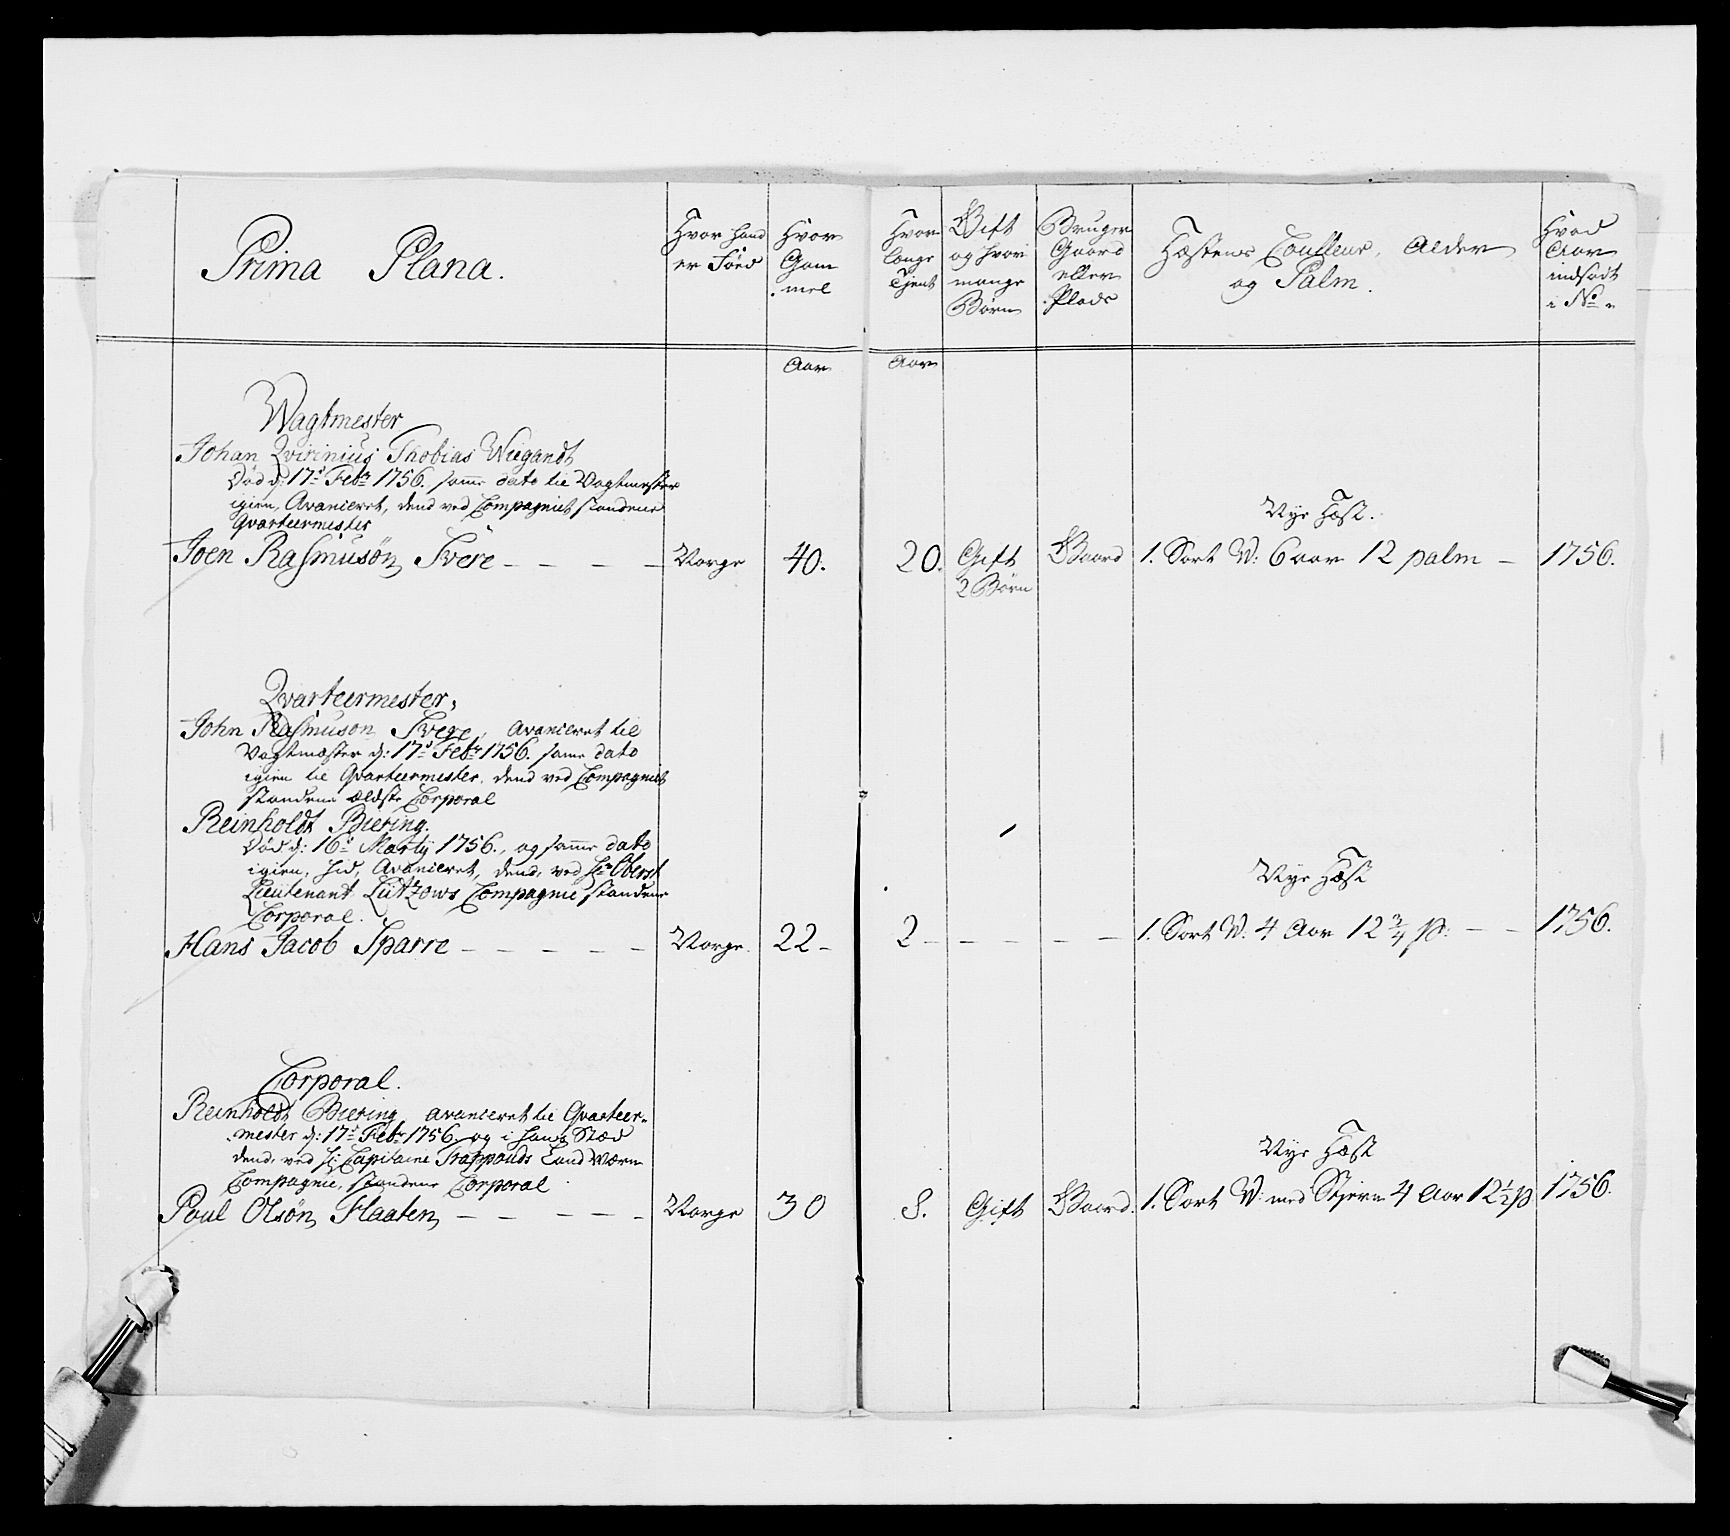 Prima Plana.
Hvor hand
er Föed
Hvor
Gam
mel
Hvor
længe
Tjent
Gift
og hvor
mange
Börn
Bruger
Gaard
eller
Plads
Hæstens Coulleur, Alder
og Palm.
Hvad
Aar
indsadt
i No.
Aar
Aar
Wagtmester
Johan Qvirinius Thobias Wiegandt
Död d: 17de Febr 1756. samme dato til Vagtmester
igien, Avanceret, dend ved Compagniet standene
Qvarteermester
Nye Hæst.
Joen Rasmusön Svere - - - - Norge 40. 20. Gift Gaard 1. Sort W: 6 aar 12 palm - 1756.
2 Börn
Qvarteermester,
John Rasmuson Svere, avanceret til
Vagtmæster d: 17de Febr 1756. samme dato
igien til Qvarteermester, dend ved Compagniet
standene ældste Corporal
Reinholdt Biering.
Död d: 16de Martÿ 1756., og samme dato
igien, hid, Avanceret, dend, ved Hr Oberst
Lieutenant Lützows Compagnie standene
Corporal.
Nye Hæst
Hans Jacob Sparre - - - - - Norge 22 - 2 - - - - - 1. Sort W: 4 Aar 12 3/4 p: - - 1756.
Corporal.
Reinholdt Biering avanceret til Qvarteer-
mester d: 17de Febr 1756. og i hans Stæd
dend, ved Hr Capitaine Trappauds Land Værn
Compagnie, standene Corporal
Nye Hæst
Poul Olsön Flaaten - - - - - Norge 30 8. Gift Gaard. 1. Sort W: med Stjerne 4 Aar 12 1/2 p 1756.